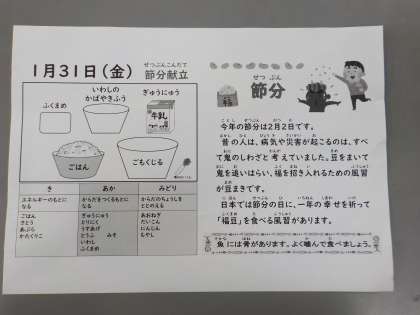 1月31日(金)
せつぶんこんだて
節分献立
ふくまめ
いわしの
かばやきふう
ぎゅうにゅう
牛乳
ごはん
ごもくじる
き
あか
みどり
エネルギーのもとに
なる
からだをつくるもとに
なる
からだのちょうしを
ととのえる
ごはん
さとう
あぶら
かたくりこ
ぎゅうにゅう
とりにく
うすあげ
とうふ みそ
いわし
ふくまめ
あおねぎ
だいこん
にんじん
もやし
せつ ぶん
節分
福
今年の節分は2月2日です。
昔の人は、病気や災害が起こるのは、すべ
て鬼のしわざと考えていました。豆をまいて
鬼を追いはらい、福を招き入れるための風習
が豆まきです。
日本では節分の日に、一年の幸せを祈って
「福豆」を食べる風習があります。
魚には骨があります。よく噛んで食べましょう。